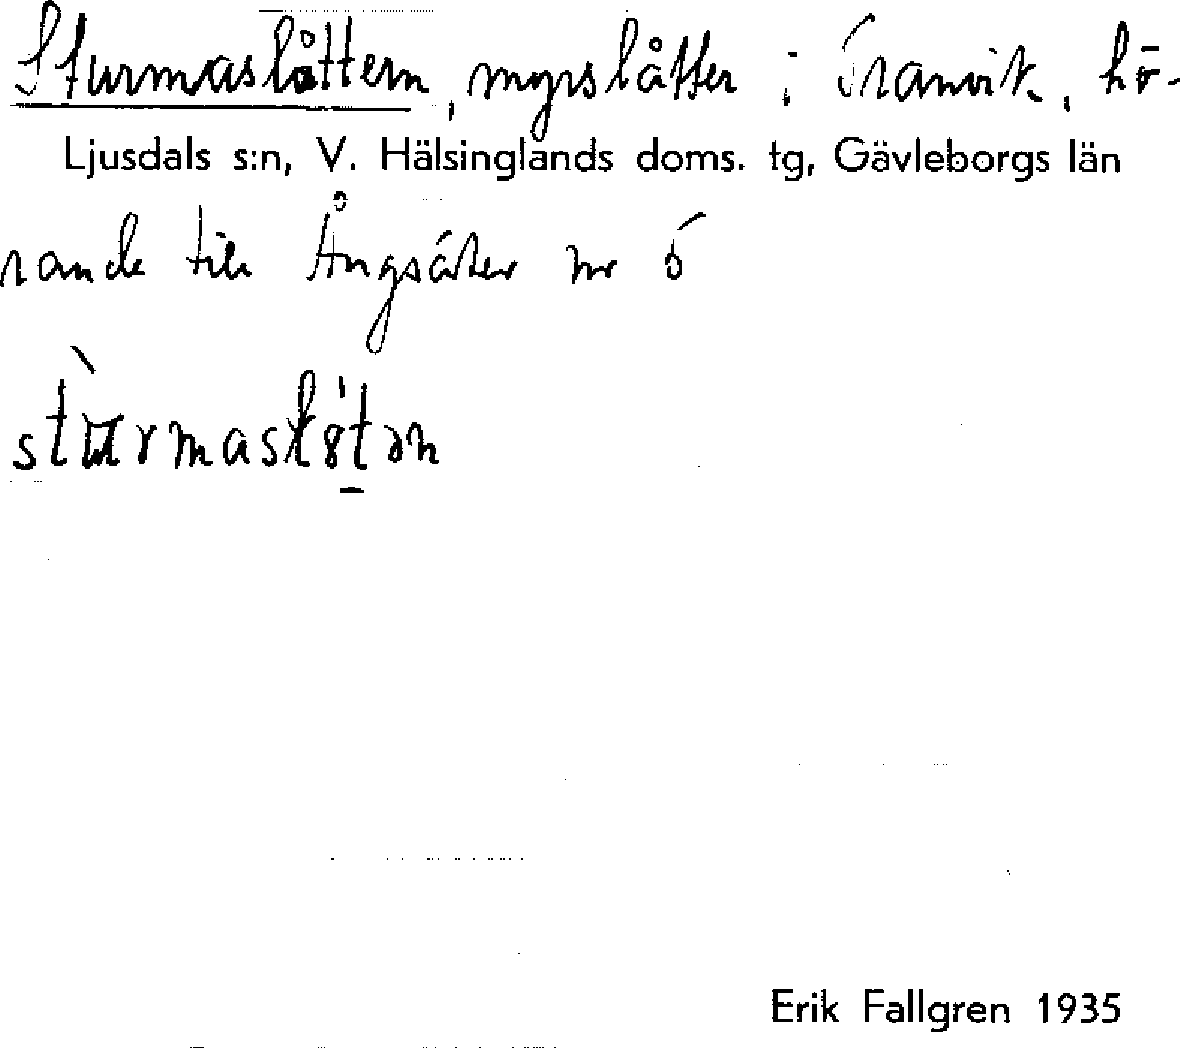 Sturmaslåttern, myrslåtter i Tranvik, hö-
Ljusdals s:n, V. Hälsinglands doms. tg, Gävleborgs län
rande till Ängsåker nr 5
Erik Fallgren 1935